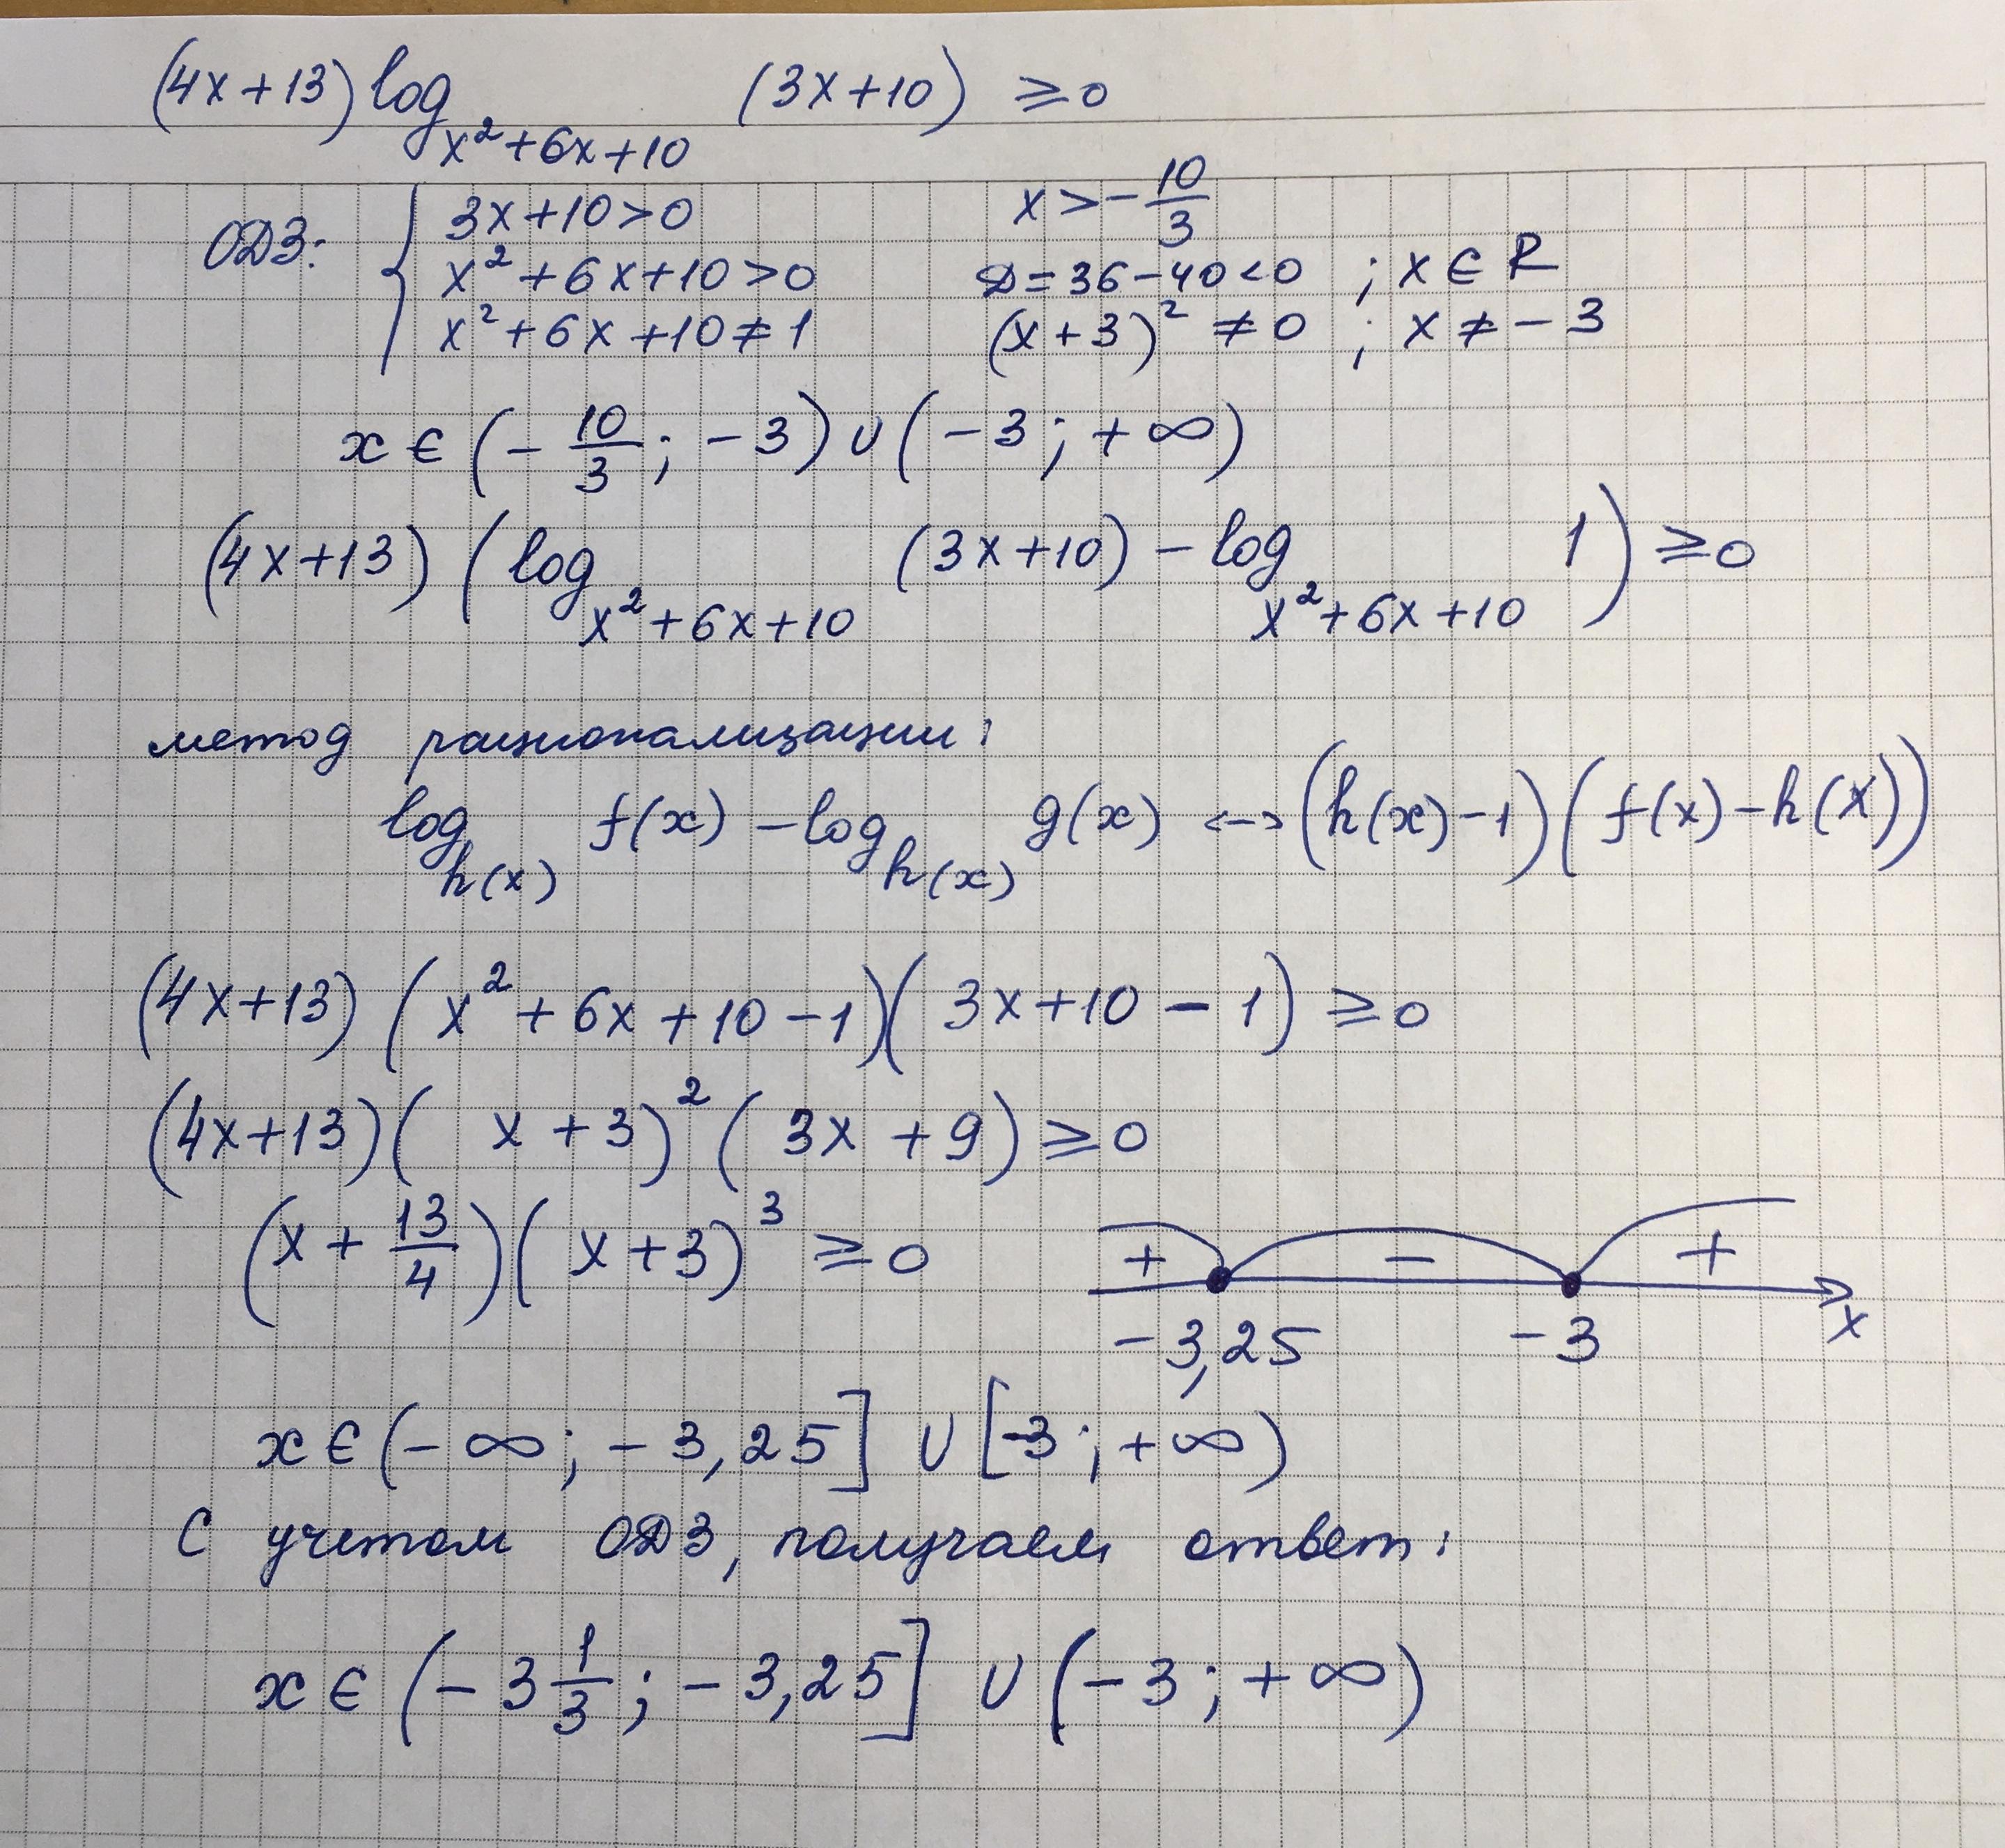 (4x+13) log_{x²+6x+10} (3x+10) ≥ 0
ОДЗ: { 3x+10>0 x > -10/3
x²+6x+10>0 D=36-40<0 ; x ∈ R
x²+6x+10≠1 (x+3)² ≠ 0 ; x ≠ -3
x ∈ (-10/3; -3) ∪ (-3; +∞)
(4x+13) (log_{x²+6x+10} (3x+10) - log_{x²+6x+10} 1) ≥ 0
метод рационализации:
log_{h(x)} f(x) - log_{h(x)} g(x) <-> (h(x)-1)(f(x)-h(x))
(4x+13)(x²+6x+10-1)(3x+10-1) ≥ 0
(4x+13)(x+3)²(3x+9) ≥ 0
(x+13/4)(x+3)³ ≥ 0 + - +
-3,25 -3 x
x ∈ (-∞; -3,25] ∪ [-3; +∞)
С учетом ОДЗ, получаем ответ:
x ∈ (-3 1/3; -3,25] ∪ (-3; +∞)